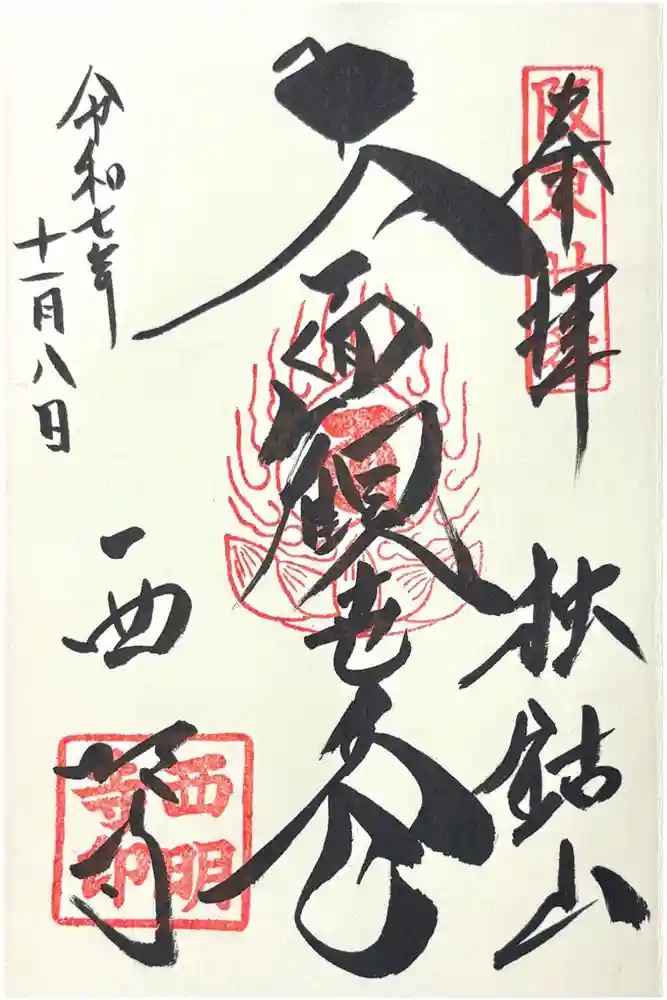 奉拝
阪東
独鈷山
面観世音
西明寺
西明寺印
令和七年
十一月八日